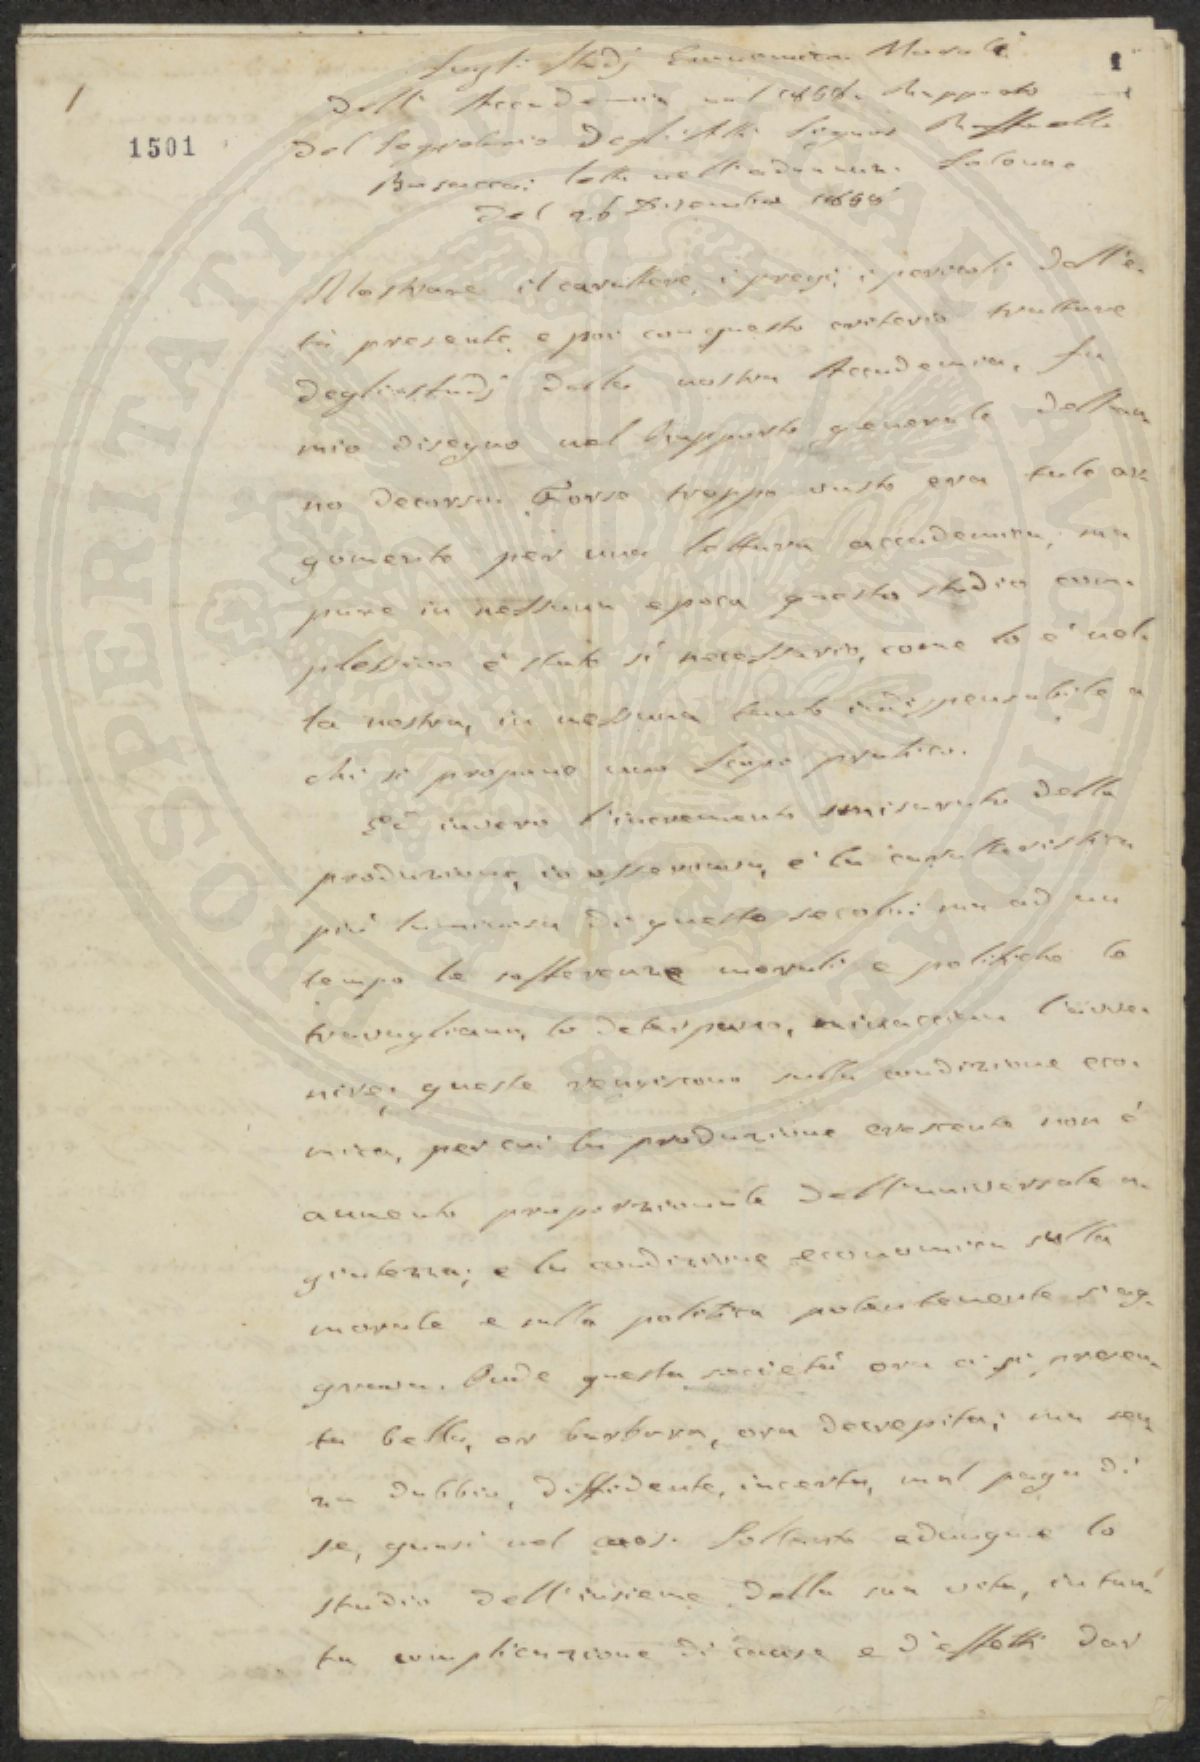 1
1
1501
Sugli Studj Economico Morali
dell'Accademia nel 1858. Rapporto
del Segretario degli Atti Signor Raffaello
Busacca; letto nell'adunanza Solenne
del 26 Dicembre 1858
Mostrare il carattere, i pregi, i pericoli dell'e-
tà presente, e poi con questo criterio trattare
degli studj della nostra Accademia, fu
mio disegno nel Rapporto generale dell'an-
no decorso. Forse troppo vasto era tale ar-
gomento per una lettura accademica, ma
pure in nessuna epoca questo studio com-
plessivo è stato sì necessario, come lo è nel-
la nostra, in nessuna tanto indispensabile a
chi si propone uno scopo pratico.
Ed invero l'incremento smisurato della
produzione, io osservava, è la caratteristica
più luminosa di questo secolo; ma ad un
tempo le sofferenze morali e politiche lo
travagliano, lo deturpano, minacciano l'avve-
nire; queste reagiscono sulla condizione eco-
mica, per cui la produzione crescente non è
aumento proporzionale dell'universale a-
giatezza; e la condizione economica sulla
morale e sulla politica potentemente s'ag-
grava. Onde questa società ora ci si presen-
ta bella, or barbara, ora decrepita; ma sen-
za dubbio, diffidente, incerta, mal paga di
se, quasi nel caos. Soltanto adunque lo
studio dell'insieme della sua vita, in tan-
ta complicazione di cause e d'effetti dar
PROSPERITATI PUBLICAE AUGENDAE